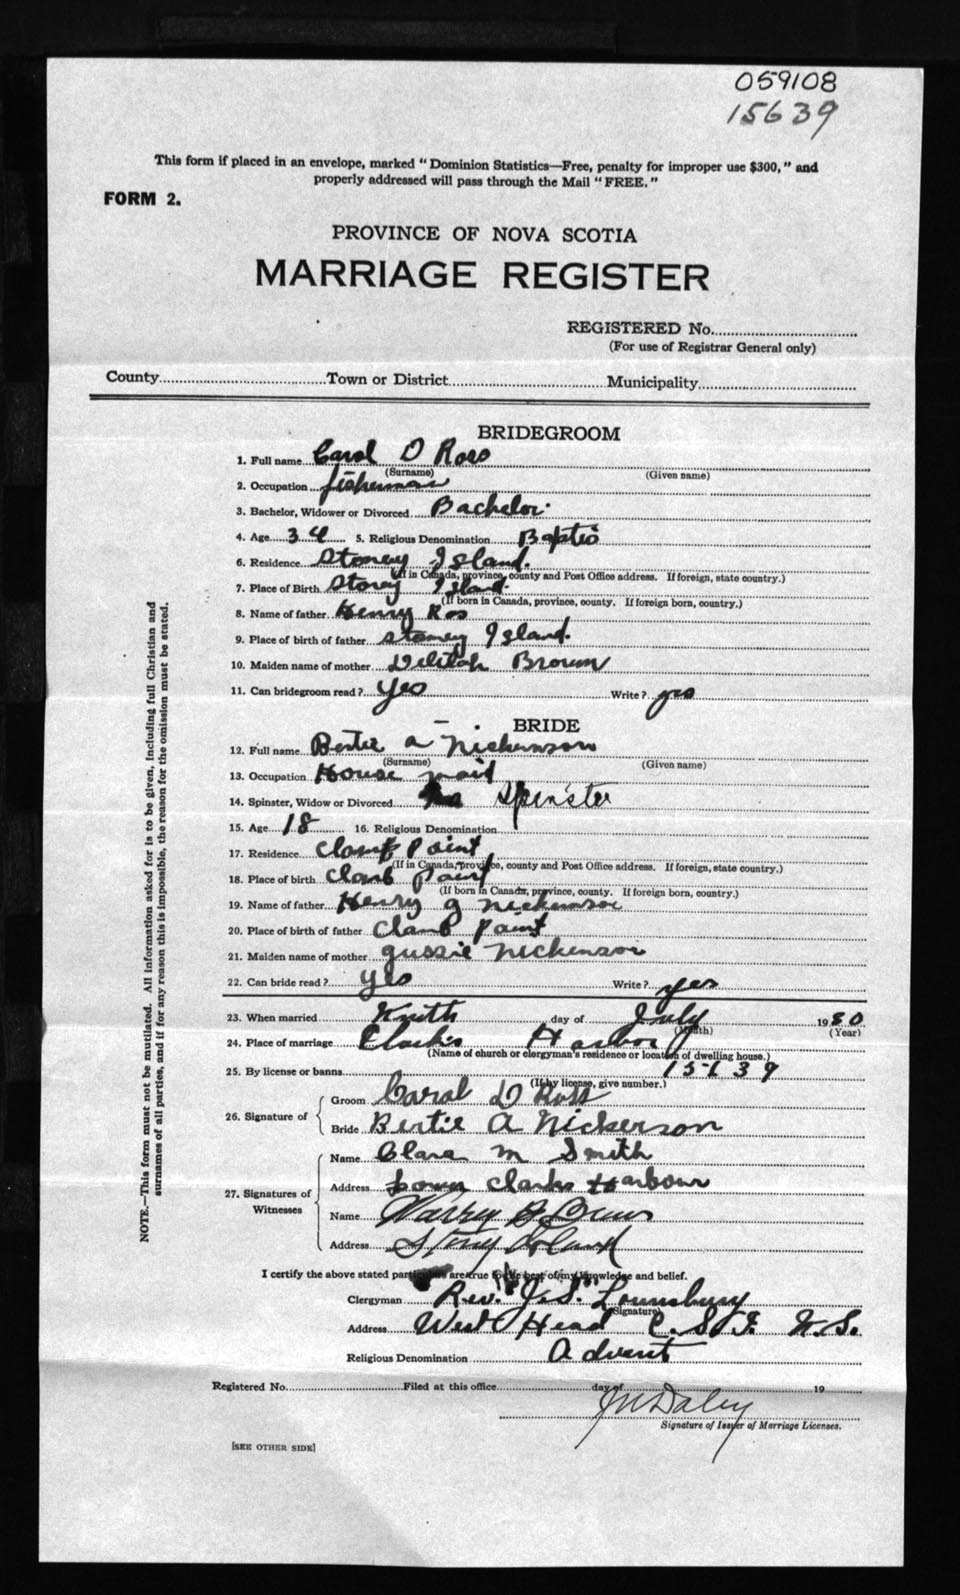 059108
15639
This form if placed in an envelope, marked "Dominion Statistics—Free, penalty for improper use $300," and
properly addressed will pass through the Mail "FREE."
FORM 2.
PROVINCE OF NOVA SCOTIA
MARRIAGE REGISTER
REGISTERED No.
(For use of Registrar General only)
County Town or District Municipality
BRIDEGROOM
1. Full name Carol D Ross
(Surname) (Given name)
2. Occupation fisherman
3. Bachelor, Widower or Divorced Bachelor
4. Age 34 5. Religious Denomination Baptis
6. Residence Stoney Island.
(If in Canada, province, county and Post Office address. If foreign, state country.)
7. Place of Birth Stoney Island.
(If born in Canada, province, county. If foreign born, country.)
8. Name of father Henry Ros
9. Place of birth of father Stoney Island.
10. Maiden name of mother Delilah Brown
11. Can bridegroom read? Yes Write? yes
BRIDE
12. Full name Bertie a Nickinson
(Surname) (Given name)
13. Occupation House maid
14. Spinster, Widow or Divorced Spinster
15. Age 18 16. Religious Denomination
17. Residence Clamb Point
(If in Canada, province, county and Post Office address. If foreign, state country.)
18. Place of birth Clamb Point
(If born in Canada, province, county. If foreign born, country.)
19. Name of father Henry g Nickinson
20. Place of birth of father Clamb Point
21. Maiden name of mother gussie Nickenson
22. Can bride read? yes Write? yes
23. When married day of July 1930
(Month) (Year)
24. Place of marriage Clarks Harbor
(Name of church or clergyman's residence or location of dwelling house.)
25. By license or banns 15639
(If by license, give number.)
26. Signature of
Groom Carol D Ross
Bride Bertie A Nickerson
27. Signatures of Witnesses
Name Clara M Smith
Address Lower Clarks Harbour
Name
Address Stony Island
I certify the above stated particulars are true to the best of my knowledge and belief.
Clergyman Rev. J. S. Lounsbury
(Signature)
Address West Head C. S. I. N. S.
Religious Denomination Advent
Registered No. Filed at this office day of 19
J M Daley
Signature of Issuer of Marriage Licenses.
[SEE OTHER SIDE]
NOTE.—This form must not be mutilated. All information asked for is to be given, including full Christian and
surnames of all parties, and if for any reason this is impossible, the reason for the omission must be stated.